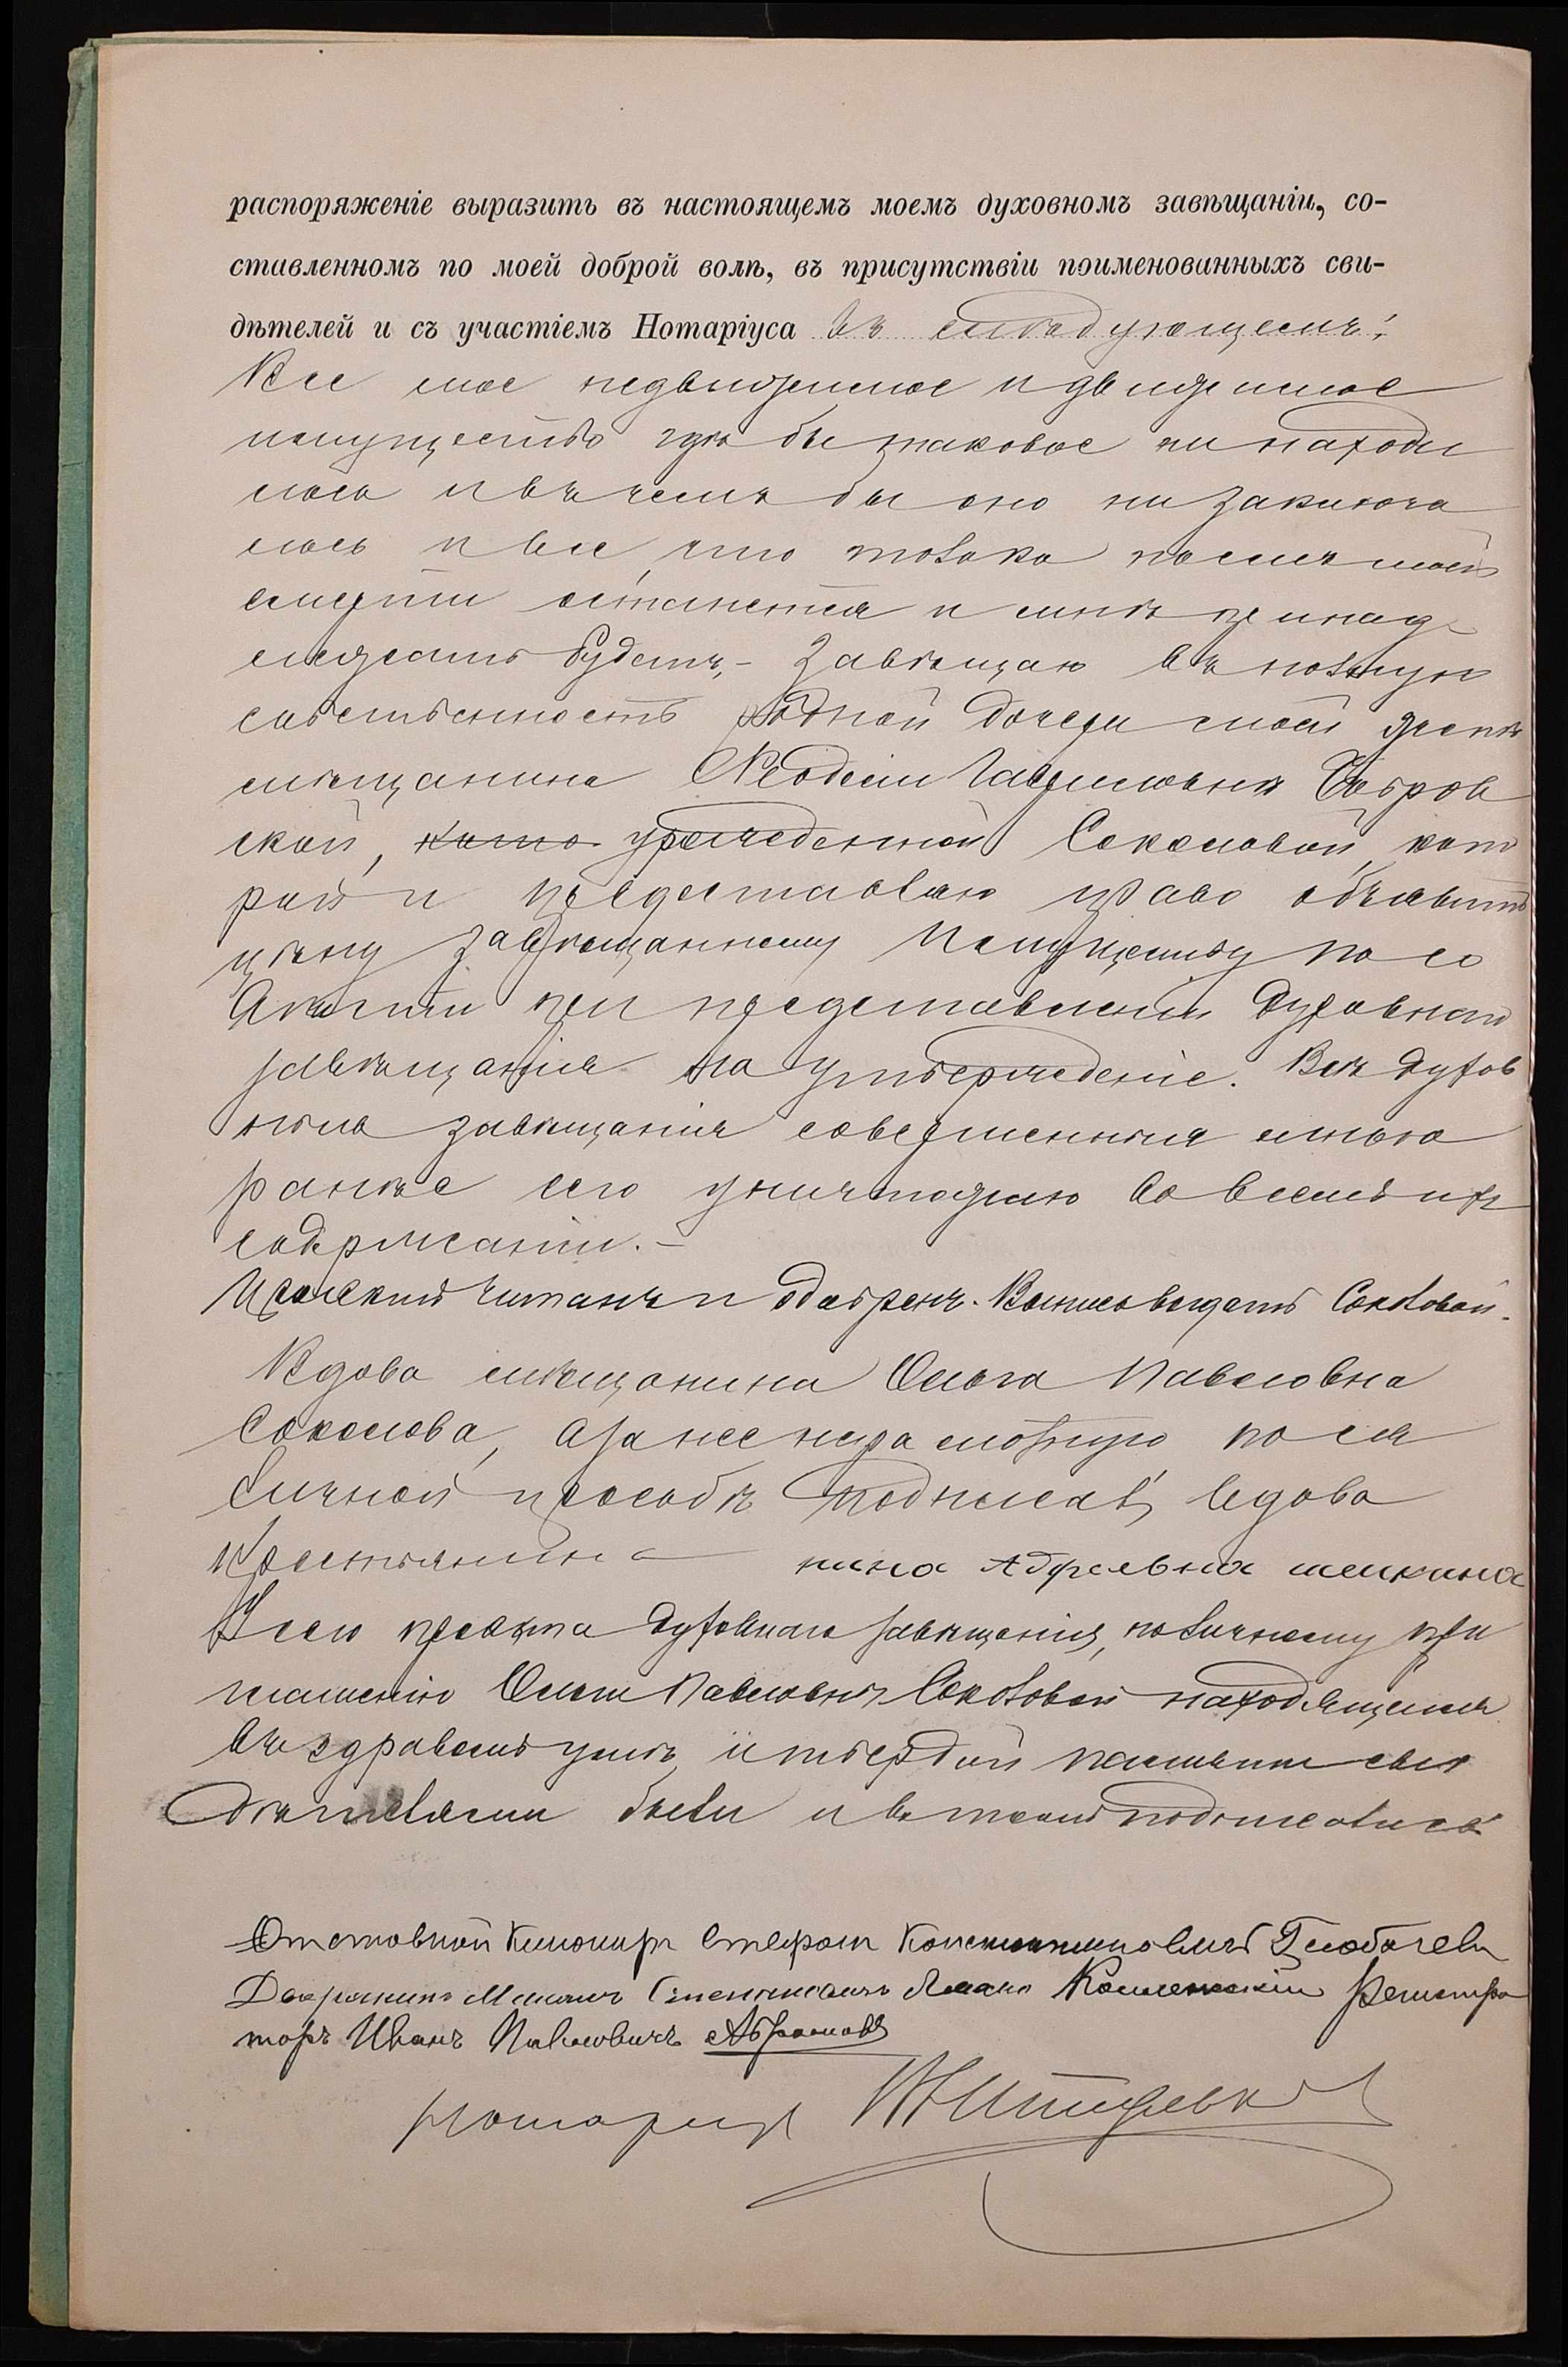 распоряженіе выразить въ настоящемъ моемъ духовномъ завѣщаніи, со-
ставленномъ по моей доброй волѣ, въ присутствіи поименованныхъ сви-
дѣтелей и съ участіемъ Нотаріуса въ слѣдующемъ:
Все мое недвижимое и движимое
имущество гдѣ бы таковое ни находи
лось и въ чемъ бы оно ни заключа
лось и все, что только послѣ моей
смерти останется и мнѣ принад
лежать будетъ,- завѣщаю въ полную
собственность родной дочери моей женѣ
мѣщанина Ѳеодосіи Гавриловнѣ
ской, урожденной Соколовой, кото
рой и предоставляю право объявить
цѣну завѣщанному имуществу по со
вѣсти при представленіи духовнаго
завѣщанія на утвержденіе. Всѣ духов
ныя завѣщанія совершенныя мною
ранѣе сего уничтожаю во всемъ ихъ
содержаніи.-
читанъ и одобренъ. Соколовой.
Вдова мѣщанина Ольга Павловна
Соколова, а за нее неграмотную по ея
личной просьбѣ вдова
крестьянина нина
У сего проэкта духовнаго завѣщанія, по личному при
глашенію Ольги Павловны Соколовой находящейся
въ здравомъ умѣ и твердой памяти сви
дѣтелями были и въ томъ подписались
Отставной Константиновичъ
Дворянинъ Степановичъ Регистра
торъ Иванъ Павловичъ Абрамовъ
Нотаріусъ